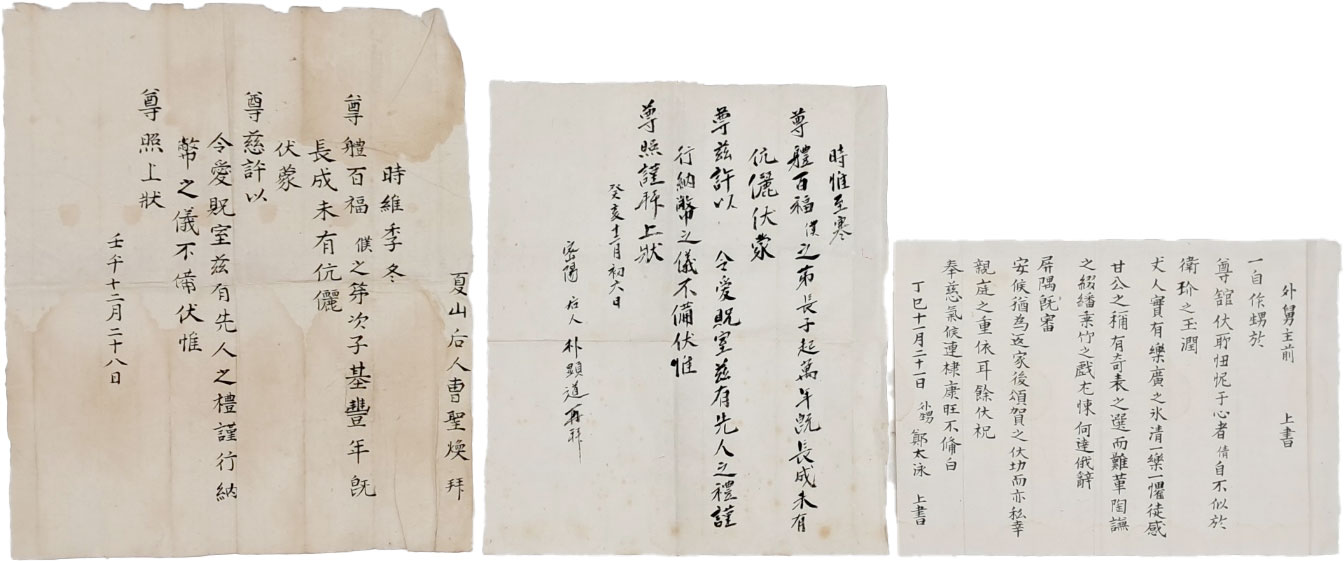 夏山后人曹聖煥 拜
時維季冬
尊體百福 僕之第次子基豐年既
長成未有伉儷
伏蒙
尊慈許以
令愛貺室玆有先人之禮謹行納
幣之儀不備伏惟
尊照上狀
壬午十二月二十八日
時惟至寒
尊體百福 僕之弟長子起萬年旣長成未有
伉儷伏蒙
尊玆許以 令愛貺室玆有先人之禮謹
行納幣之儀不備伏惟
尊照謹拜上狀
癸亥十二月初六日
密陽 后人 朴顯道再拜
外舅主前 上書
一自作甥於
尊舘伏耶忸怩于心者 倩自不似於
衛玠之玉潤
丈人實有樂廣之氷清一樂一懼徒感
甘公之稱有奇表之選而難葷陶謙
之綴繙乘竹之戲尤悚何達俄辭
屛隅旣審
安候猶爲返家後頌賀之伏切而亦私幸
親庭之重依耳餘伏祝
奉慈氣候連棣康旺不備白
丁巳十一月二十一日 外甥 鄭太泳 上書